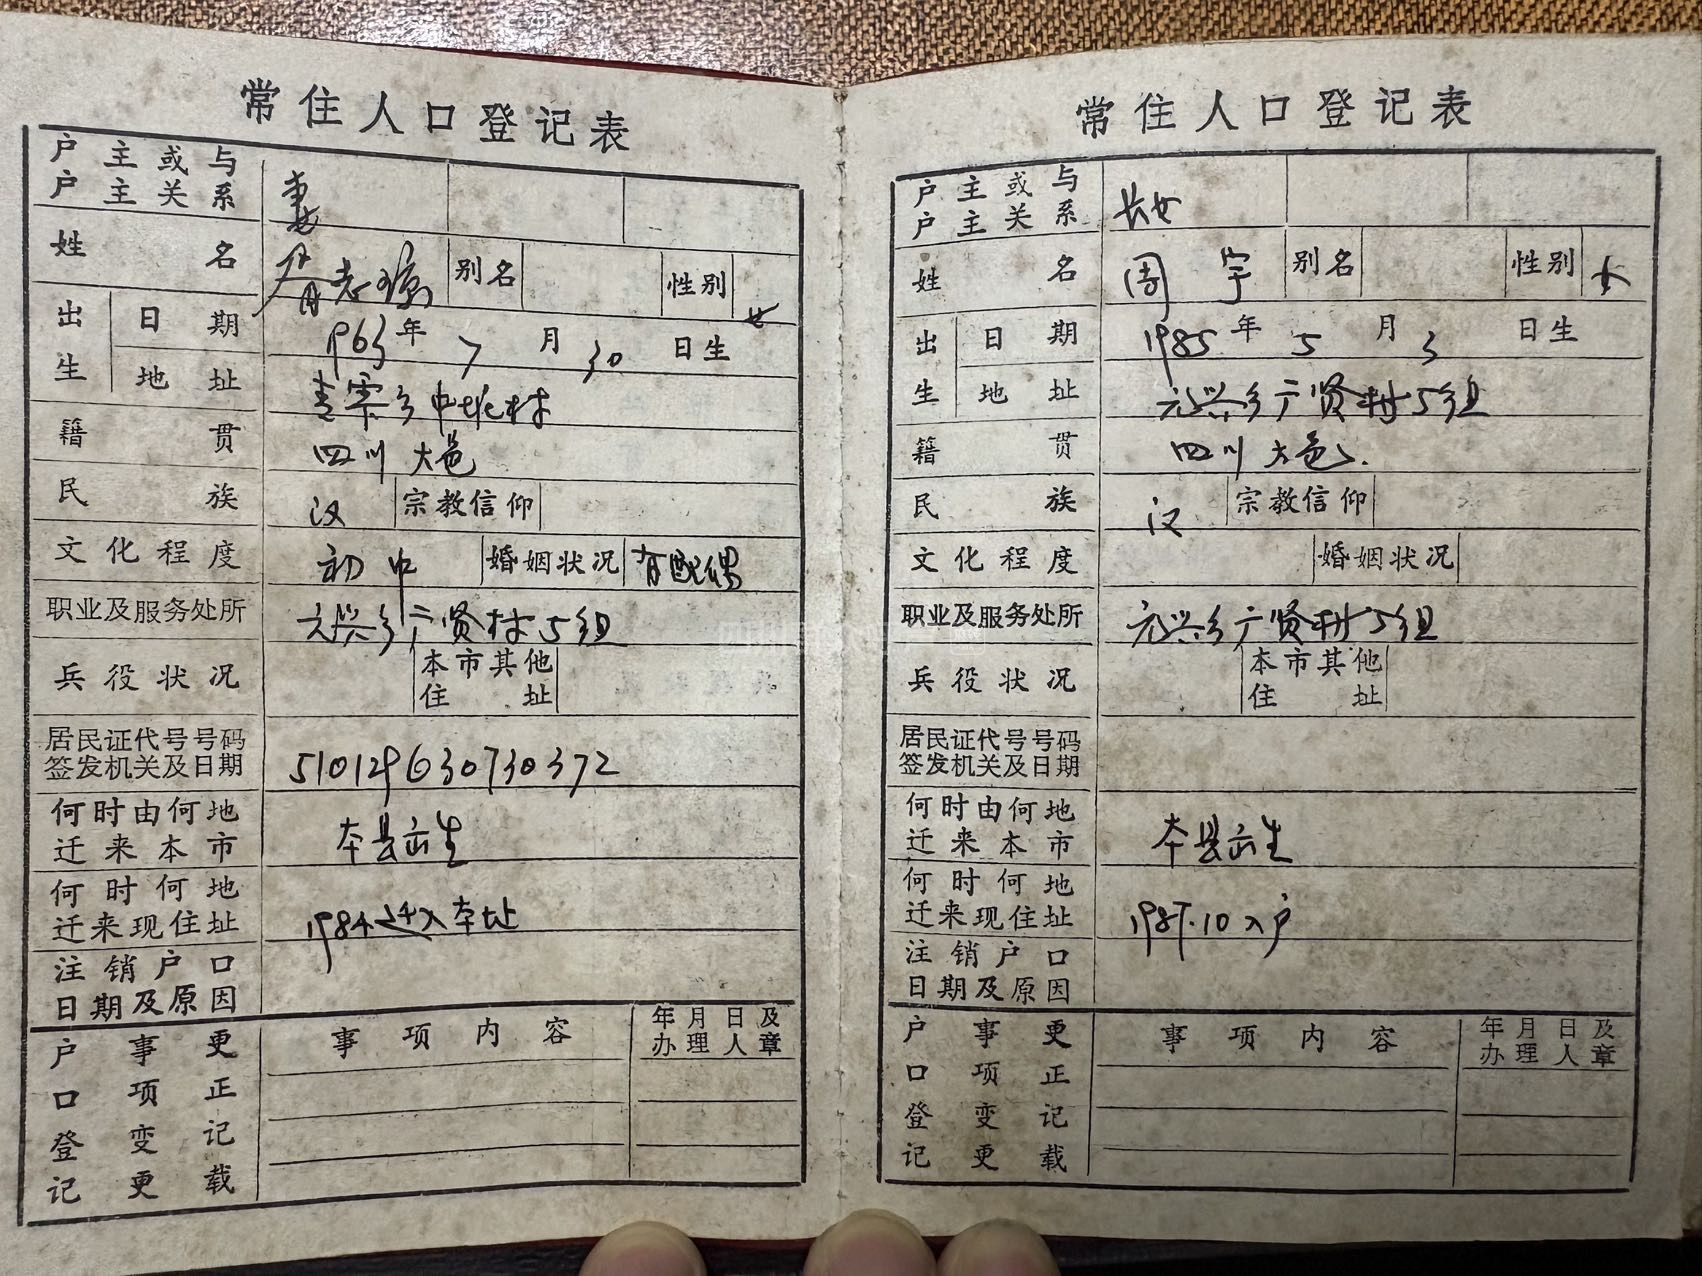 常住人口登记表
户主或与
户主关系 妻
姓名 志琼 别名 性别 女
出生 日期 1963年7月30日生
地址 乡中堆村
籍贯 四川大邑
民族 汉 宗教信仰
文化程度 初中 婚姻状况 有配偶
职业及服务处所 元兴乡广贤村5组
兵役状况 本市其他
住址
居民证代号号码
签发机关及日期 510129630730372
何时由何地
迁来本市 本县出生
何时何地
迁来现住址 1984迁入本址
注销户口
日期及原因
户口登记 事项变更 更正记载 事项内容 年月日及
办理人章
常住人口登记表
户主或与
户主关系 长女
姓名 周宇 别名 性别 女
出生 日期 1985年5月3日生
地址 元兴乡广贤村5组
籍贯 四川大邑
民族 汉 宗教信仰
文化程度 婚姻状况
职业及服务处所 元兴乡广贤村5组
兵役状况 本市其他
住址
居民证代号号码
签发机关及日期
何时由何地
迁来本市 本县出生
何时何地
迁来现住址 10入户
注销户口
日期及原因
户口登记 事项变更 更正记载 事项内容 年月日及
办理人章